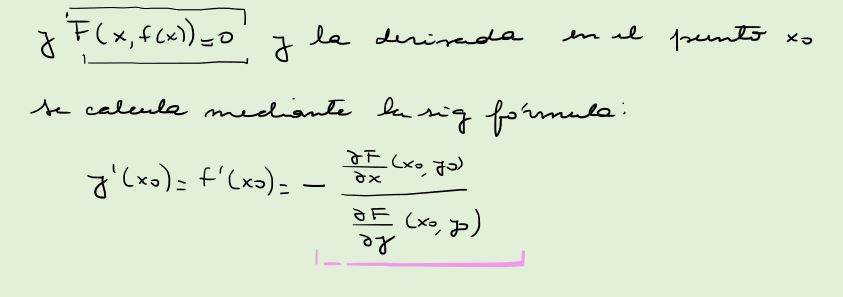 y F(x, f(x)) = 0 y la derivada en el punto x₀
se calcula mediante la sig fórmula:
y'(x₀) = f'(x₀) = - ∂F/∂x (x₀, y₀) / ∂F/∂y (x₀, y₀)